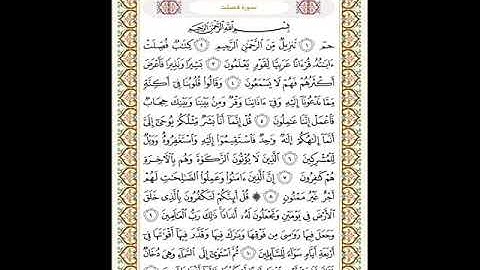 سورة فصلت
بِسْمِ ٱللَّهِ ٱلرَّحْمَٰنِ ٱلرَّحِيمِ
حمٓ ١ تَنزِيلٌ مِّنَ ٱلرَّحْمَٰنِ ٱلرَّحِيمِ ٢ كِتَٰبٌ فُصِّلَتْ
ءَايَٰتُهُۥ قُرْءَانًا عَرَبِيًّا لِّقَوْمٍ يَعْلَمُونَ ٣ بَشِيرًا وَنَذِيرًا فَأَعْرَضَ
أَكْثَرُهُمْ فَهُمْ لَا يَسْمَعُونَ ٤ وَقَالُوا۟ قُلُوبُنَا فِىٓ أَكِنَّةٍ
مِّمَّا تَدْعُونَآ إِلَيْهِ وَفِىٓ ءَاذَانِنَا وَقْرٌ وَمِنۢ بَيْنِنَا وَبَيْنِكَ حِجَابٌ
فَٱعْمَلْ إِنَّنَا عَٰمِلُونَ ٥ قُلْ إِنَّمَآ أَنَا۠ بَشَرٌ مِّثْلُكُمْ يُوحَىٰٓ إِلَىَّ
أَنَّمَآ إِلَٰهُكُمْ إِلَٰهٌ وَٰحِدٌ فَٱسْتَقِيمُوٓا۟ إِلَيْهِ وَٱسْتَغْفِرُوهُ وَوَيْلٌ
لِّلْمُشْرِكِينَ ٦ ٱلَّذِينَ لَا يُؤْتُونَ ٱلزَّكَوٰةَ وَهُم بِٱلْءَاخِرَةِ
هُمْ كَٰفِرُونَ ٧ إِنَّ ٱلَّذِينَ ءَامَنُوا۟ وَعَمِلُوا۟ ٱلصَّٰلِحَٰتِ لَهُمْ
أَجْرٌ غَيْرُ مَمْنُونٍ ٨ ۞ قُلْ أَئِنَّكُمْ لَتَكْفُرُونَ بِٱلَّذِى خَلَقَ
ٱلْأَرْضَ فِى يَوْمَيْنِ وَتَجْعَلُونَ لَهُۥٓ أَندَادًا ذَٰلِكَ رَبُّ ٱلْعَٰلَمِينَ ٩
وَجَعَلَ فِيهَا رَوَٰسِىَ مِن فَوْقِهَا وَبَٰرَكَ فِيهَا وَقَدَّرَ فِيهَآ أَقْوَٰتَهَا فِىٓ
أَرْبَعَةِ أَيَّامٍ سَوَآءً لِّلسَّآئِلِينَ ١٠ ثُمَّ ٱسْتَوَىٰٓ إِلَى ٱلسَّمَآءِ وَهِىَ دُخَانٌ